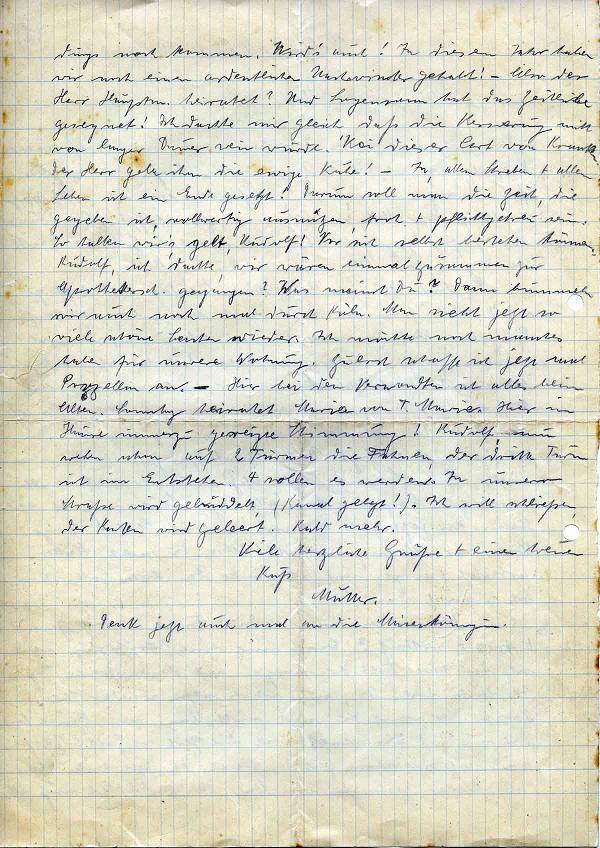 dings noch kommen. Wird's auch! In diesem Jahr haben
wir noch einen ordentlichen gehabt! – Also der
Herr heiratet? Und hat das Zeitliche
gesegnet! Ich dachte mir gleich, daß die Besserung nicht
von langer Dauer sein würde. Bei dieser Art von
der Herr gebe ihm die ewige Ruhe! – Ja, allem Streben + allem
Leben ist ein Ende gesetzt. Darum soll man die Zeit, die
gegeben ist, vollwertig ausnützen, fort + pflichtgetreu sein.
So halten wir's gelt, Rudolf! Vor sich selbst bestehen können.
Rudolf, ich dachte, wir wären einmal zusammen zur
gegangen? Was meinst Du? Dann bummeln
wir auch noch mal durch Köln. Man sieht jetzt so
viele schöne Sachen wieder. Ich möchte noch manches
haben für unsere Wohnung. Zuerst schaffe ich jetzt mal
Porzellan an. – Hier bei den Verwandten ist alles beim
Alten. Samstag heiratet Maria von T. Maria. Hier im
Hause immerzu gereizte Stimmung! Rudolf, nun
wehen schon auf 2 Türmen die Fahnen, der dritte Turm
ist im Entstehen. 4 sollen es werden. In unserer
Straße wird gebuddelt, (Kanal gelegt!). Ich will schließen,
der Kasten wird geleert. Bald mehr.
Viele herzliche Grüße + einen lieben
Kuß
Mutter.
Denk jetzt auch mal an die